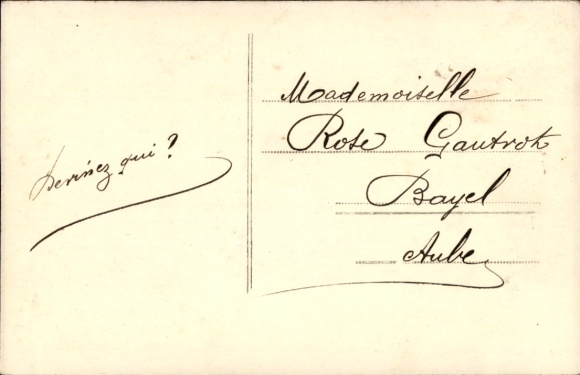 Devinez qui?
Mademoiselle
Rose Gautrot
Bayel
Aube